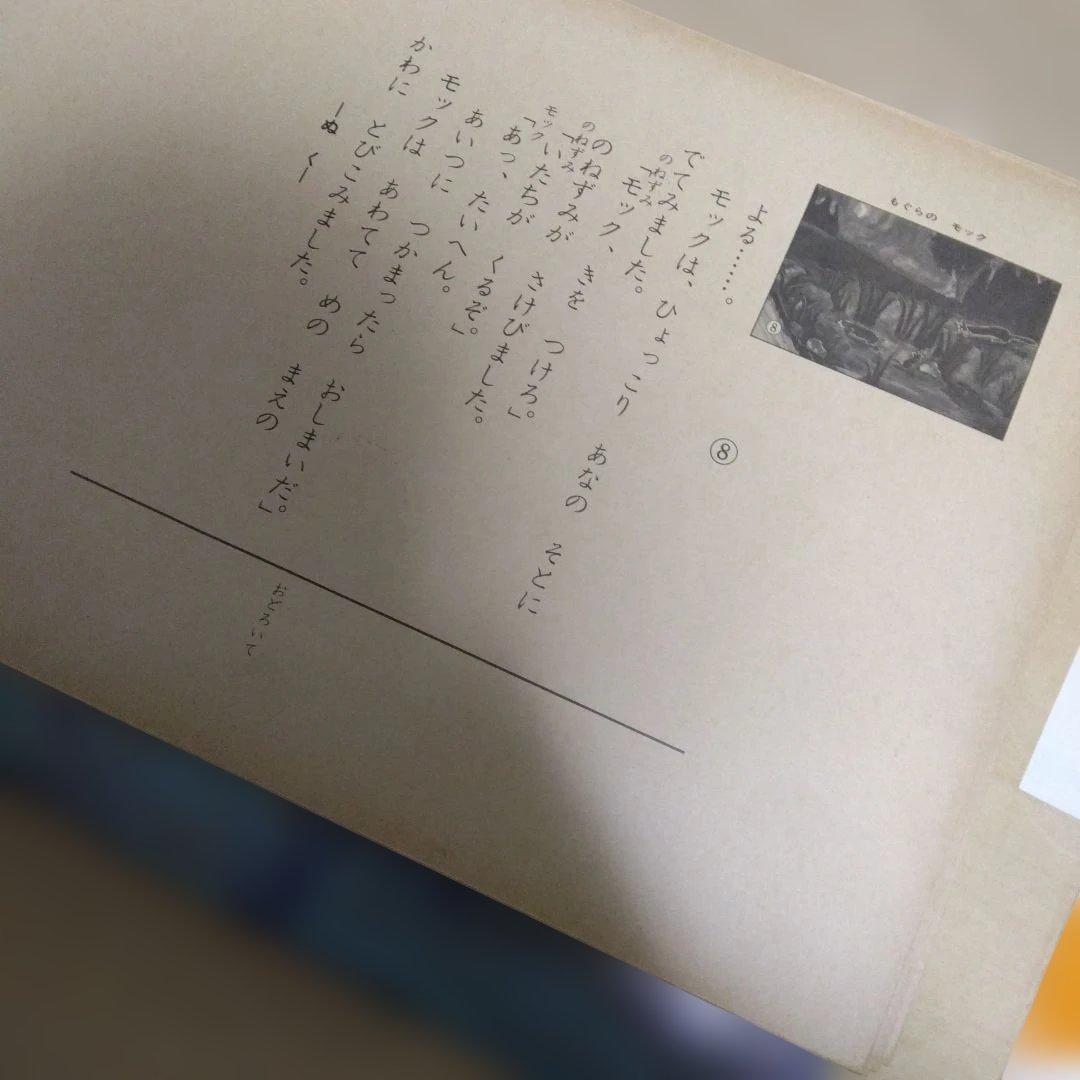 もぐらの モック
⑧
⑧
よる……。
モックは、ひょっこり あなの そとに
でてみました。
のねずみ「モック、きを つけろ。」
のねずみが さけびました。
のねずみ「いたちが くるぞ。」
モック「あっ、たいへん。
あいつに つかまったら おしまいだ。」
モックは あわてて めの まえの
かわに とびこみました。
―ぬ く―
おどろいて